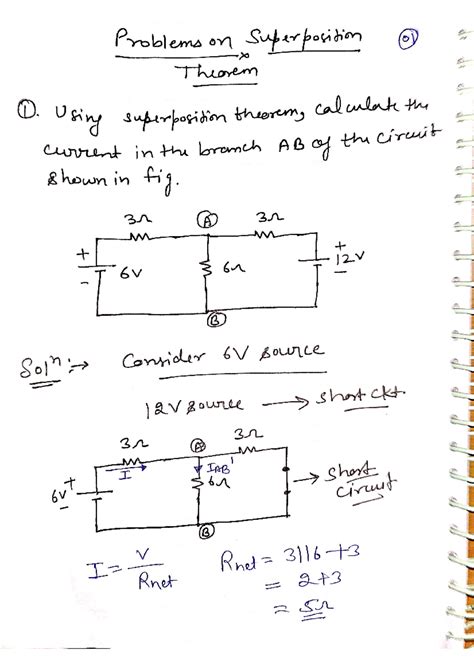 Problems on Superposition
Theorem
01
①. Using superposition theorem, calculate the
current in the branch AB of the circuit
shown in fig.
3Ω A 3Ω
+ 6V - 6Ω + 12V -
B
Solⁿ:→ Consider 6V source
12V source → short ckt
3Ω A 3Ω
I IAB'
6V + - 6Ω → Short
circuit
B
I = V / Rnet
Rnet = 3||6+3
= 2+3
= 5Ω